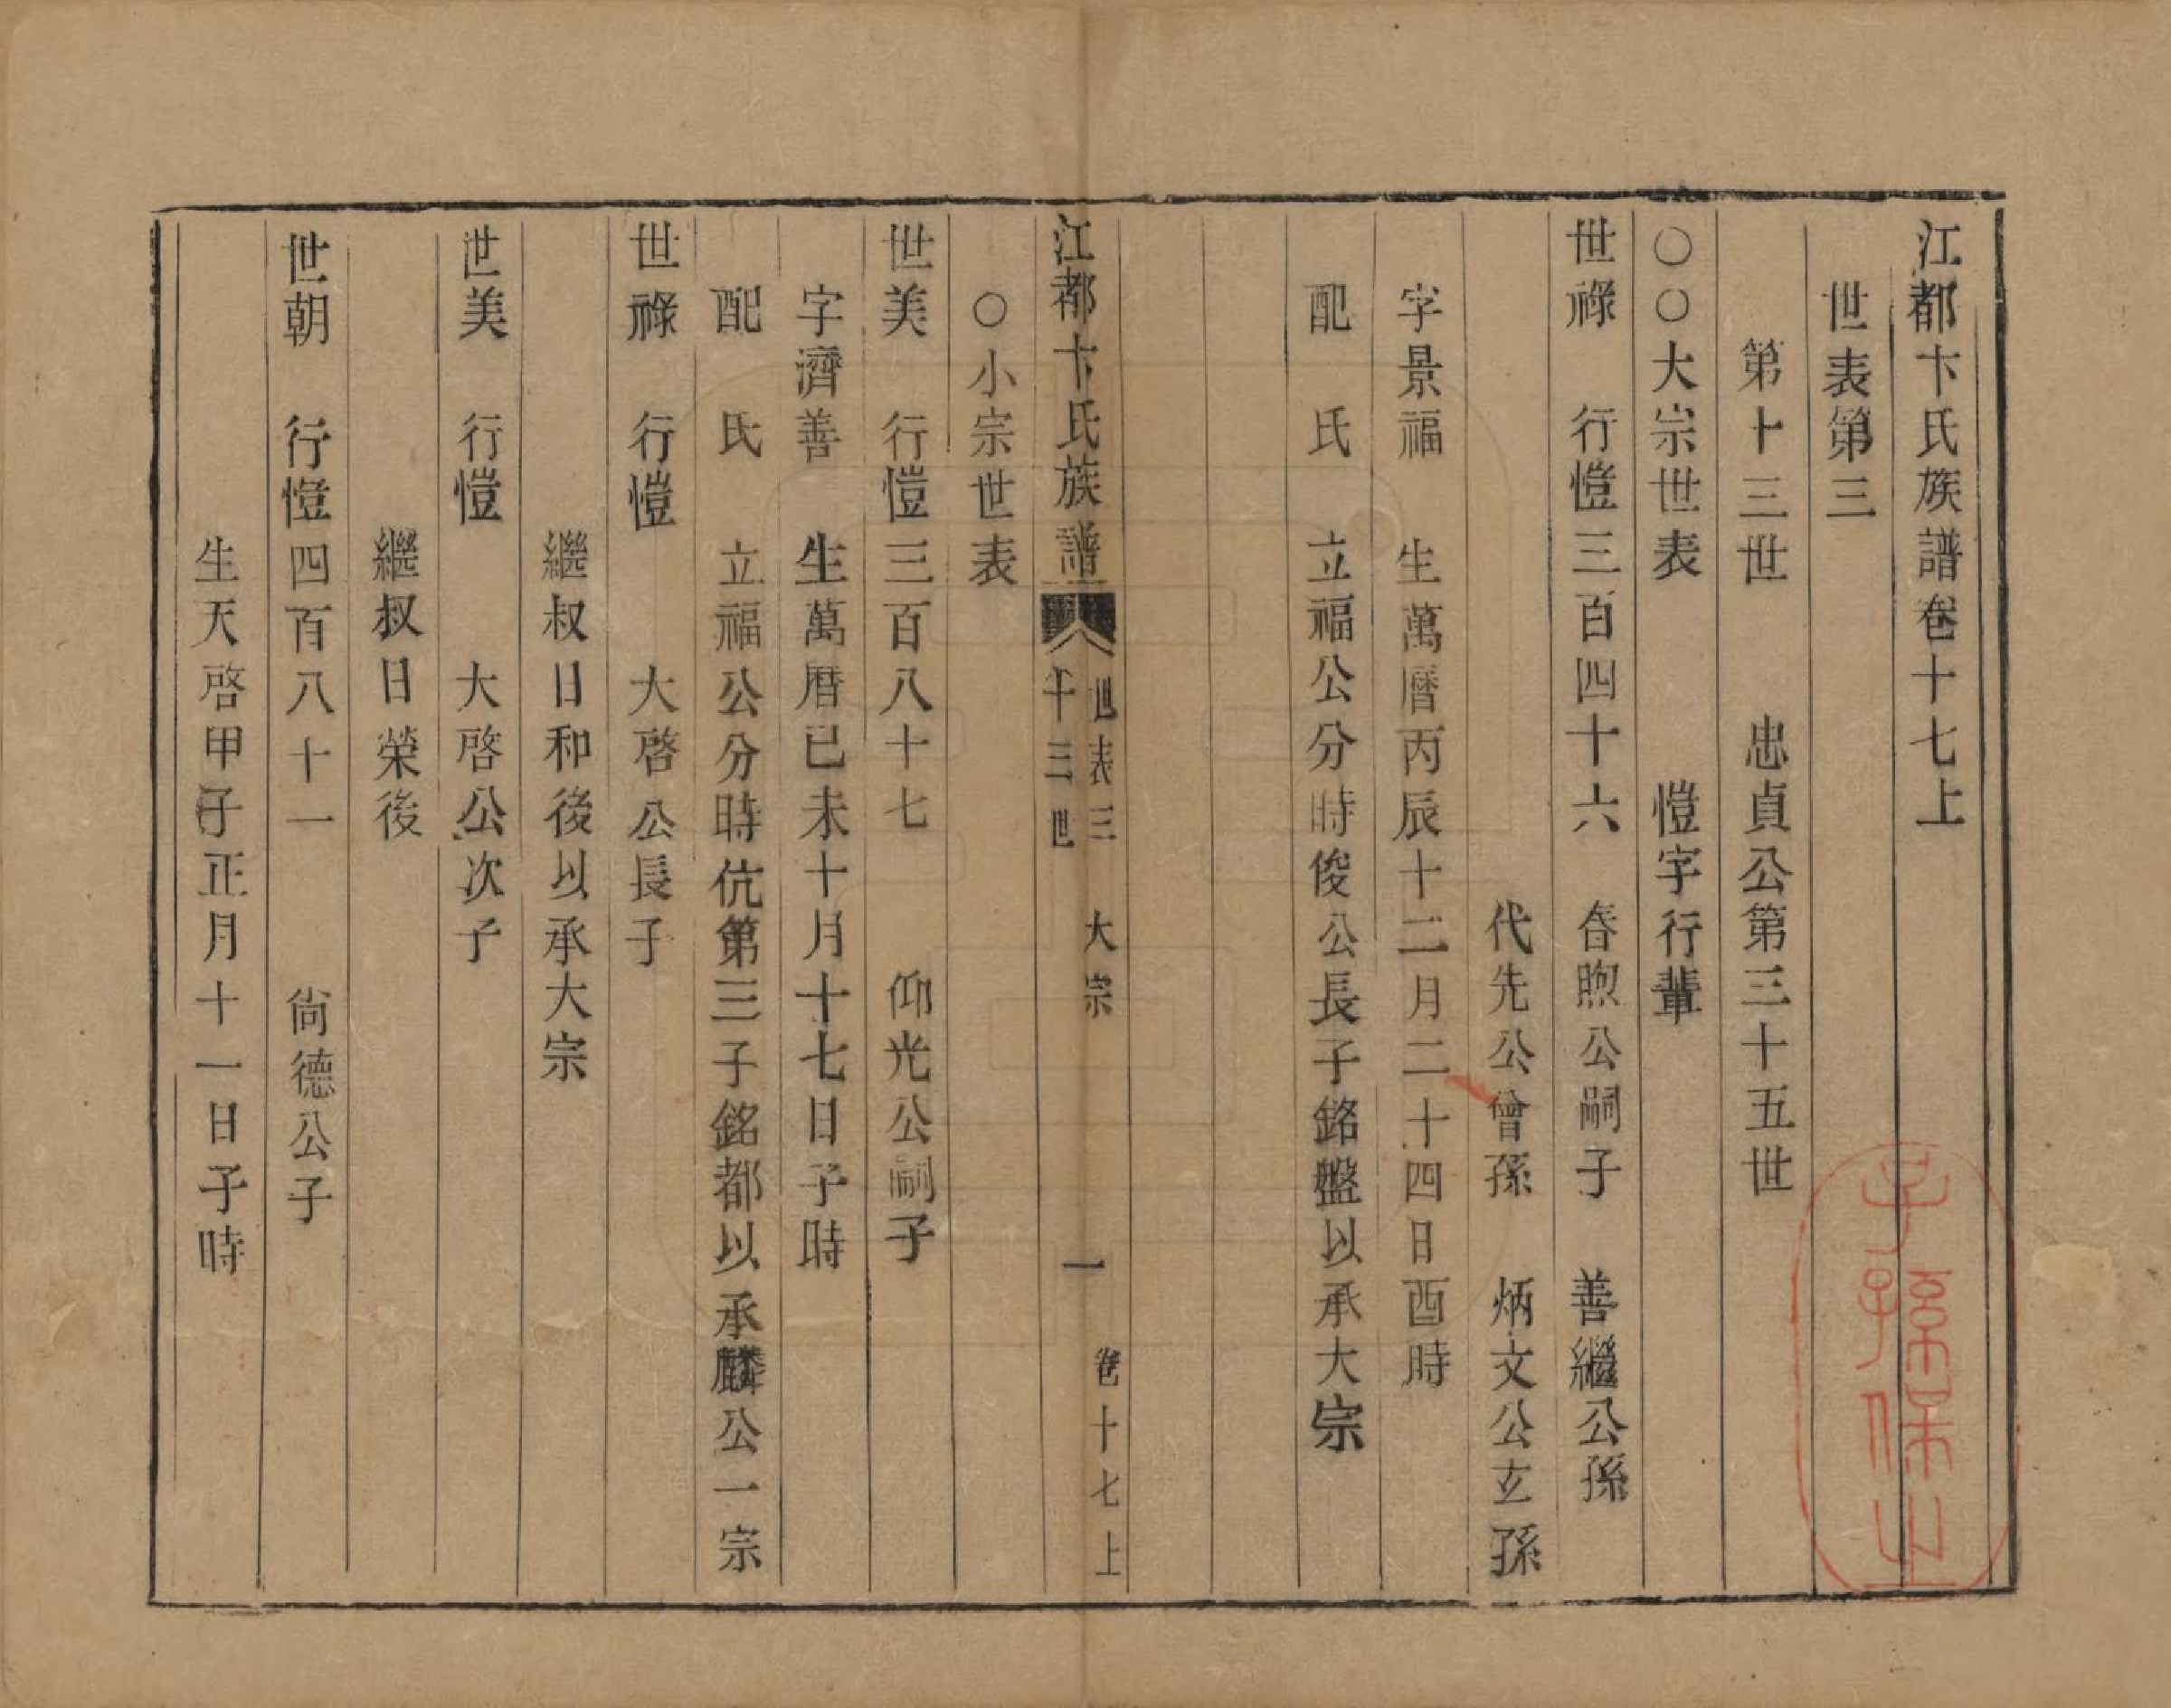 江都卞氏族譜卷十七上
世表第三
第十三世　忠貞公第三十五世
○○大宗世表　愷字行輩
世祿　行愷三百四十六　春煦公嗣子　善繼公孫
代先公曾孫　炳文公玄孫
字景福　生萬曆丙辰十二月二十四日酉時
配　氏　立福公分時俊公長子銘盤以承大宗
江都卞氏族譜　世表三　十三世　大宗　一　卷十七上
○小宗世表
世美　行愷三百八十七　仰光公嗣子
字濟善　生萬曆己未十月十七日子時
配　氏　立福公分時伉第三子銘都以承麟公一宗
世祿　行愷　大啓公長子
繼叔日和後以承大宗
世美　行愷　大啓公次子
繼叔日榮後
世朝　行愷四百八十一　尙德公子
生天啓甲子正月十一日子時
子孫保之